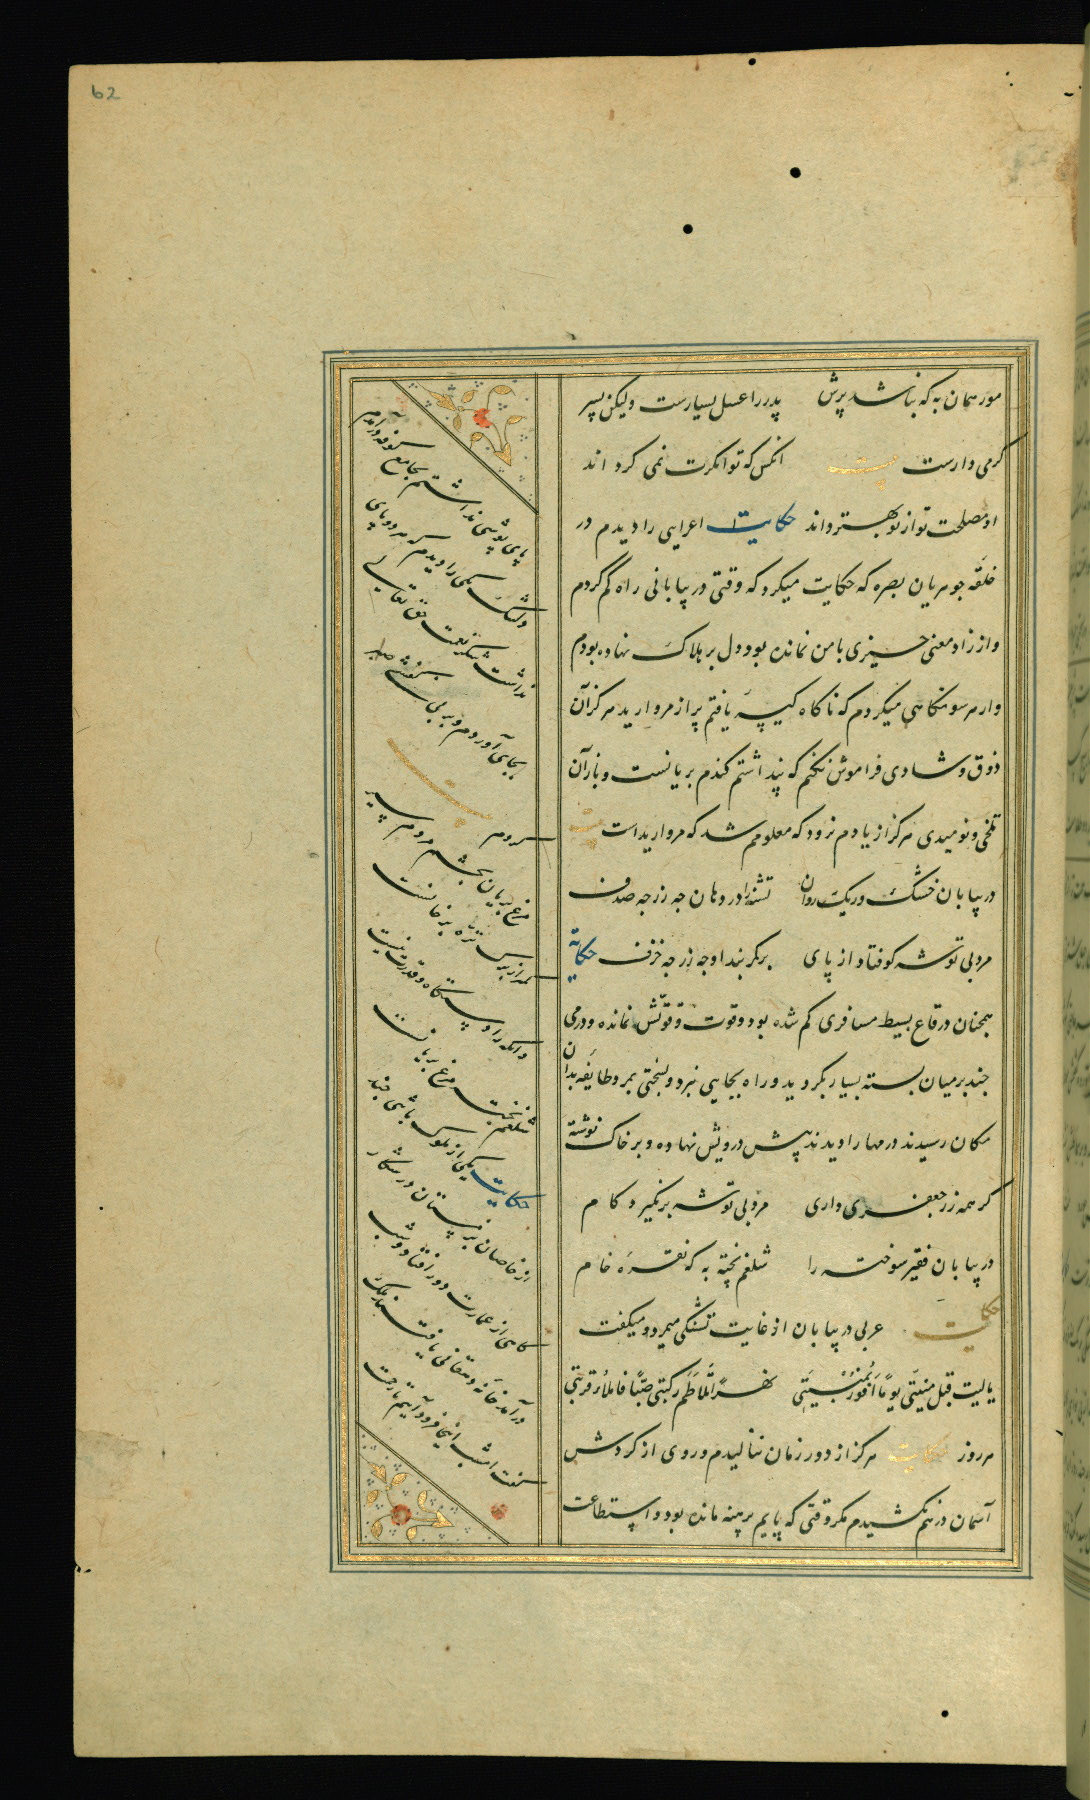 62
مور همان به که نباشد پرش پدر را عسل بسیارست ولیکن پسر
کرمی دارست بیت انکس که توانکرت نمی کرداند
او مصلحت تو از تو بهتر داند حکایت اعرابی را دیدم در
حلقه جوهریان بصره که حکایت میکرد که وقتی در بیابانی راه کم کردم
واز زاد معنی چیزی با من نمانده بود و دل بر هلاک نهاده بودم
وار هر سو نکاهی میکردم که ناکاه کیسه یافتم پر از مروارید هرکز آن
ذوق و شادی فراموش نکنم که پنداشتم کندم بریانست و باز آن
تلخی و نومیدی هرکز از یادم نرود که معلومم شد که مرواریدست بیت
در بیابان خشک و ریک روان تشنه را در دهان چه زر چه صدف
مرد بی توشه کو فتاد از پای بر کمر بند او چه زر چه خزف حکایة
همچنان در قاع بسیط مسافری کم شده بود و قوت و قوتش نمانده و درمی
چند بر میان بسته بسیار بکردید و راه بجایی نبرد و بسختی بمرد طایفه بدان
مکان رسیدند درمها را دیدند پیش رویش نهاده و بر خاک نوشته
کر همه زر جعفری داری مرد بی توشه برنکیرد کام
در بیابان فقیر سوخته را شلغم پخته به که نقره خام
حکایت عربی در بیابان از غایت تشنکی میمرد و میکفت
یا لیت قبل منیتی یوما افوز بمنیتی نهرا تلاطم رکبتی فاملأ قربتی
هرروز حکایت هرکز از دور زمان ننالیدم و روی از کردش
آسمان درهم نکشیدم مکر وقتی که پایم برهنه مانده بود و استطاعت
پای پوشی نداشتم بجامع کوفه درآمدم
دلتنک یکی را دیدم که هر دو پای
نداشت شکر نعمت حق تعالی
بجای آوردم و بر بی کفشی صبر
کردم بیت
مرغ بریان بچشم مردم سیر
کمتر از برک تره بر خوانست
وانکه را دستکاه و قدرت نیست
شلغم پخته مرغ بریانست
حکایت یکی از ملوک با تنی چند
از خاصان بزمستان در شکار
کاهی از عمارت دور افتاد و شب
درآمد خانه دهقانی یافتند ملک
کفت امشب اینجا فرود آییم تا زحمت